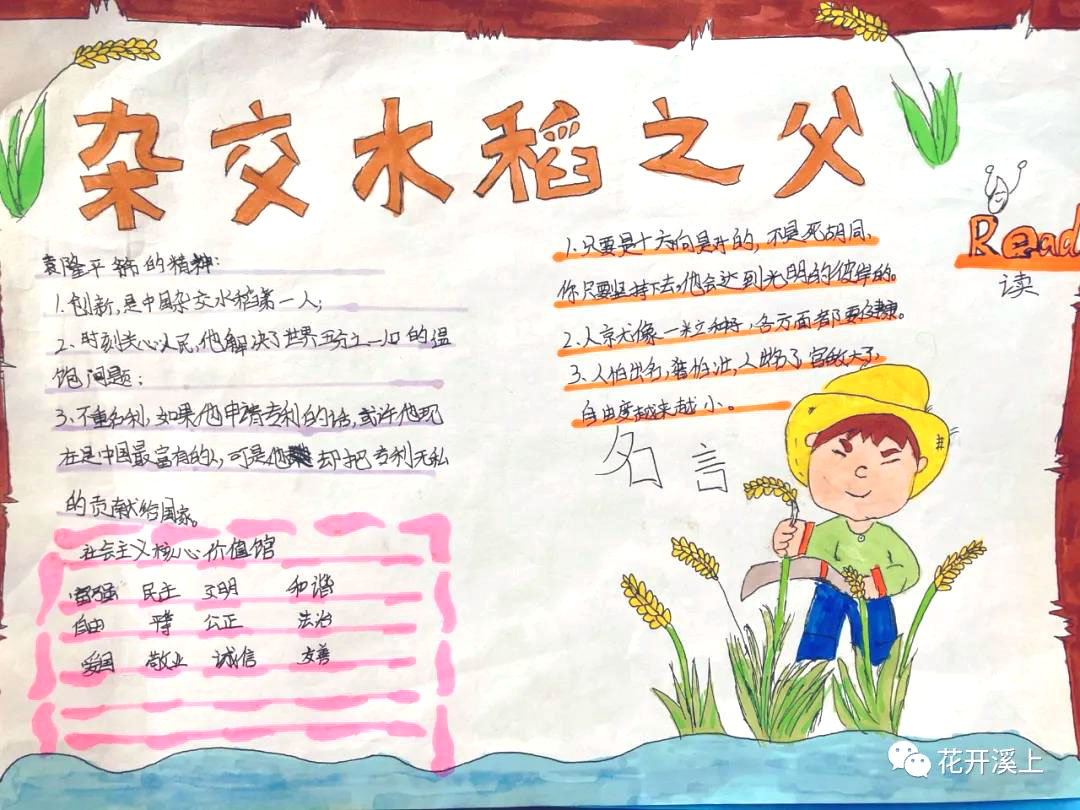 杂交水稻之父
袁隆平的精神:
1.创新,是中国杂交水稻第一人;
2、时刻关心人民,他解决了世界五分之一口的温
饱问题;
3、不重名利,如果他申请专利的话,或许他现
在是中国最富有的人,可是他却把专利无私
的贡献给国家。
社会主义核心价值馆
富强 民主 文明 和谐
自由 平等 公正 法治
爱国 敬业 诚信 友善
1.只要是十方向是开的,不是死胡同,
你只要坚持下去,他会达到光明的彼岸的。
2.人京尤像一米立种子,各方面都要健康。
3、人怕出名,猪怕壮,人出名了,
自由度越来越小。
名言
Read
读
花开溪上